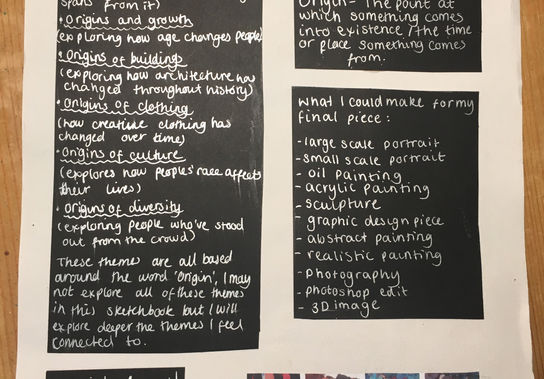 spans from it)
· Origins and growth
(exploring how age changes people)
· Origins of buildings
(exploring how architecture has
changed throughout history)
· Origins of clothing
(how creative clothing has
changed over time)
· Origins of culture
(explores how peoples' race affects
their lives)
· Origins of diversity
(exploring people who've stood
out from the crowd)
These themes are all based
around the word 'Origin', I may
not explore all of these themes
in this sketchbook but I will
explore deeper the themes I feel
connected to.
Origin - The point at
which something comes
into existence / the time
or place something comes
from.
What I could make for my
final piece:
- large scale portrait
- small scale portrait
- oil painting
- acrylic painting
- sculpture
- graphic design piece
- abstract painting
- realistic painting
- photography
- photoshop edit
- 3D image